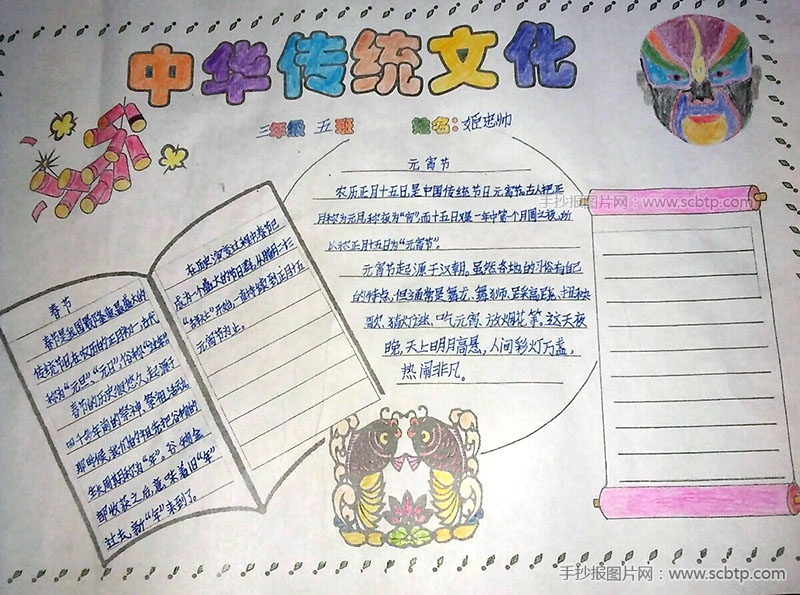 中华传统文化
三年级 五班 姓名:姬忠帅
春节
春节是我国最隆重最盛大的
传统节日在农历的正月初一,古代
称为“元旦”、“元日”,俗称“过年”
春节的历史很悠久,起源于
四千多年前的祭神、祭祖活动,
那时候,我们的祖先把谷物的
生长周期称为“年”。谷物全
部收获之后,意味着旧“年”
过去,新“年”来到了。
在历史演变过程中春节已
成为一个盛大的节日群,从腊月二十三
开始,一直持续到正月十五
元宵节为止。
元宵节
农历正月十五日,是中国传统节日元宵节。古人把正
月称为元月,称夜为“宵”而十五日又是一年中第一个月圆之夜,所
以称正月十五日为“元宵节”。
元宵节起源于汉朝,虽然各地的习俗有自己
的特点,但通常是舞龙、舞狮、踩高跷、扭秧
歌、猜灯谜、吃元宵、放烟花等。这天夜
晚,天上明月高悬,人间彩灯万盏,
热闹非凡。
手抄报图片网:www.scbtp.com
手抄报图片网:www.scbtp.com